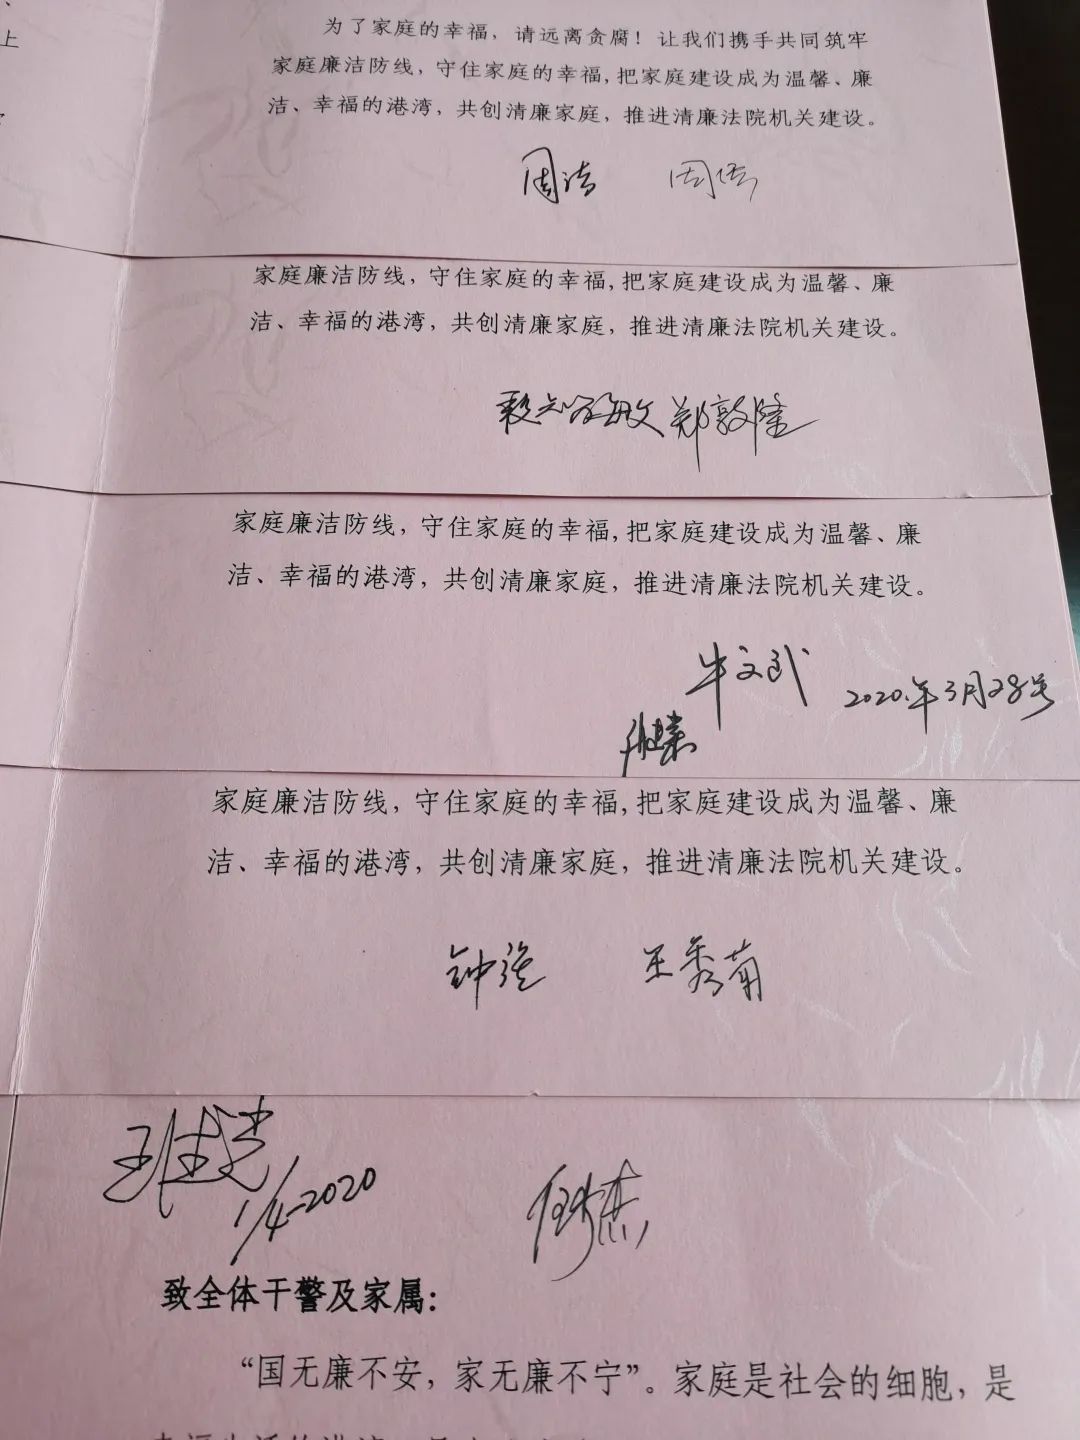 上
为了家庭的幸福，请远离贪腐！让我们携手共同筑牢
家庭廉洁防线，守住家庭的幸福,把家庭建设成为温馨、廉
洁、幸福的港湾，共创清廉家庭，推进清廉法院机关建设。
家庭廉洁防线，守住家庭的幸福,把家庭建设成为温馨、廉
洁、幸福的港湾，共创清廉家庭，推进清廉法院机关建设。
郑敦隆
家庭廉洁防线，守住家庭的幸福,把家庭建设成为温馨、廉
洁、幸福的港湾，共创清廉家庭，推进清廉法院机关建设。
牛文武 2020.年3月28号
家庭廉洁防线，守住家庭的幸福,把家庭建设成为温馨、廉
洁、幸福的港湾，共创清廉家庭，推进清廉法院机关建设。
钟强 王秀菊
1/4-2020
致全体干警及家属：
“国无廉不安，家无廉不宁”。家庭是社会的细胞，是